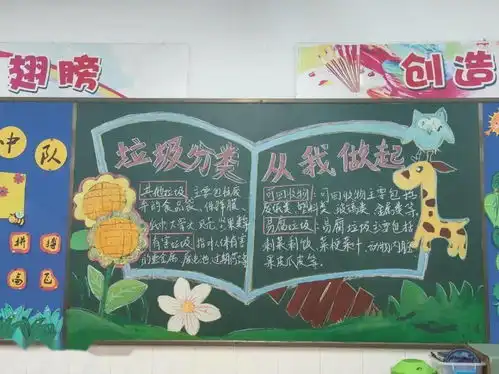 翅膀
创造
中队
拼搏
高飞
垃圾分类
从我做起
其他垃圾 主要包括废
弃的食品袋、保鲜膜、
有害垃圾 指对人体有害
的重金属、
可回收物 可回收物主要包括
废纸类、塑料类、玻璃类、金属类等。
易腐垃圾 易腐垃圾主要包括
剩菜剩饭、菜梗菜叶、动物内脏
果皮瓜皮等。